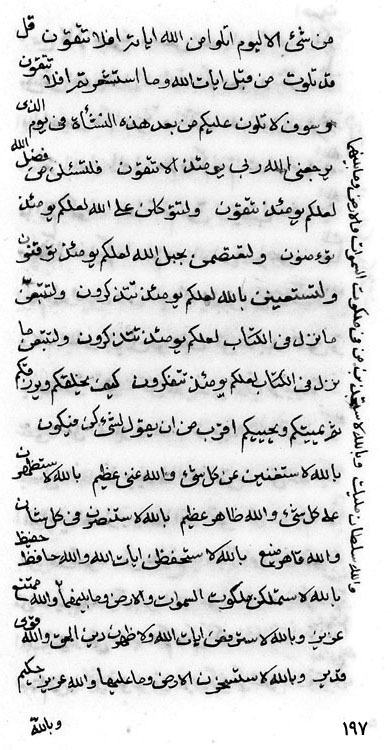 من شئ الا اليوم اتلوا من الله ايات افلا تتقون قل
قد تلوت من قبل ايات الله وما استشعرتم افلا تتقون
وسوف لاتلون عليكم من بعد هذه النشأة في يوم الذى
يرجعنى الله ربى يومئذ الا تتقون فلتسئلن من فضل الله
لعلكم يومئذ تتقون ولتتوكلن على الله لعلكم يومئذ
تؤمنون ولتعتصمن بحبل الله لعلكم يومئذ توقنون
ولتستعينن بالله لعلكم يومئذ تتذكرون ولتتبعن
ما نزل فى الكتاب لعلكم يومئذ تتذكرون ولتتبعن ما
نزل فى الكتاب لعلكم يومئذ تتفكرون كيف يخلقكم ويرزقكم
ثم يميتكم ويحييكم اقرب من ان يقول لشئ كن فيكون
بالله لاستغنين عن كل شئ والله غنى عظيم بالله لاستظهرن
على كل شئ والله ظاهر عظيم بالله لاستنصرن فى كل شان
والله قاهر منيع بالله لاستحفظن ايات الله والله حافظ حفيظ
بالله لاستملكن ملكوت السموات والارض وما بينهما والله ممتنع
عزيز وبالله لاسترفعن ايات الله ولاظهرن دين الحق والله قوى
قدير وبالله لاستسخرن الارض وما عليها والله عزيز حكيم
وبالله
١٩٧
ملكوت السموات والارض وما بينهما
والله سلطان مليك وبالله